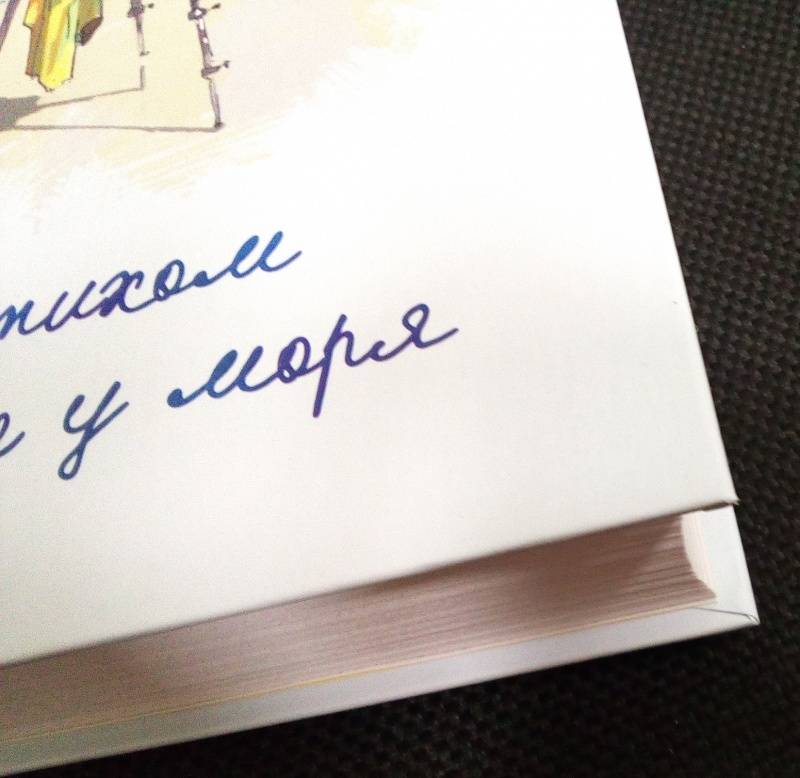 тихом
у моря